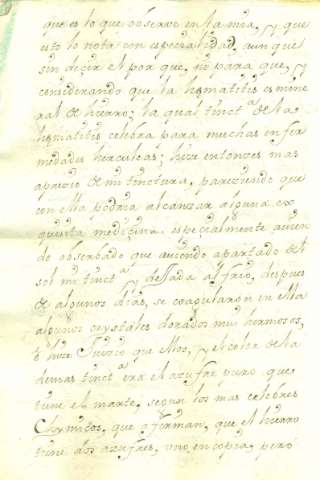 que es lo que observo en la mia, y que
esto lo nota con especialidad, aunque
sin decir el por que, ni para que, y
considerando que la hęmatites es mine
ral de hierro; la qual tinct.ª de la
hęmatites celebra para muchas enfer
medades herculeas; hize entonces mas
aprecio de mi tinctura, pareziendo que
con ella podria alcanzar alguna ex
quisita medicina. especialmente avien
do observado que aviendo apartado del
sol mi tinct.ª y dejada al frio, despues
de algunos dias, se coagularon en ella
algunos crystales dorados mui hermosos,
è hize Juizio que ellos, y el color de la
demas tinct.ª era el azufre puro que
tiene el marte, segun los mas celebres
Chymicos, que afirman, que el hierro
tiene dos azufres, uno en copia, pero